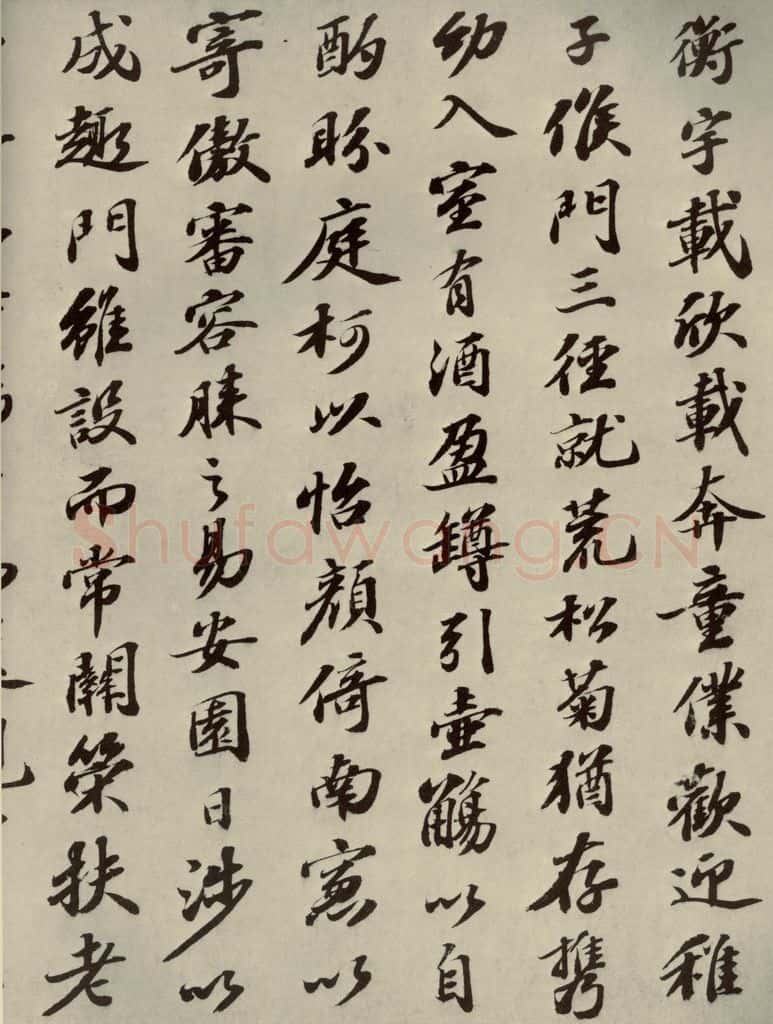 衡宇載欣載奔童僕歡迎稚
子候門三徑就荒松菊猶存攜
幼入室有酒盈罇引壺觴以自
酌眄庭柯以怡顏倚南窓以
寄傲審容膝之易安園日涉以
成趣門雖設而常關策扶老
Shufawang.CN